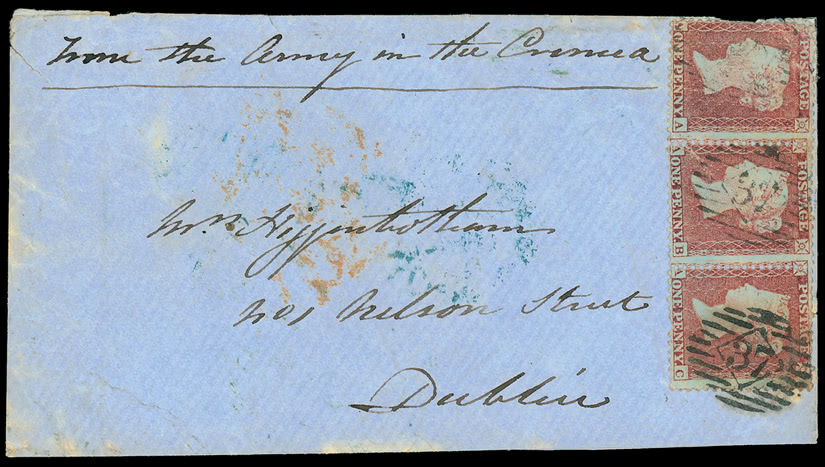 From the Army in the Crimea
Mrs Higginbotham
No 1 Nelson Street
Dublin
POSTAGE
ONE PENNY
A A
POSTAGE
ONE PENNY
A B
POSTAGE
ONE PENNY
A C
37